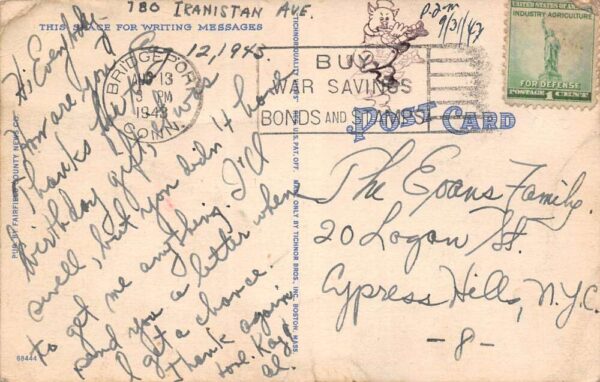 780 IRANISTAN AVE.
THIS SPACE FOR WRITING MESSAGES
12, 1943
Hi Everybody
How are you
Thanks for the
birthday gift, it were
swell, but you didn't have
to get me anything. I'll
send you a letter when
I get a chance.
Thanks again
love. Kay
al.
PUB. BY FAIRFIELD COUNTY NEWS CO.
68444
BRIDGEPORT
13
PM
1943
CONN.
BUY
WAR SAVINGS
BONDS AND STAMPS
TICHNOR QUALITY VIEWS REG. U. S. PAT. OFF. MADE ONLY BY TICHNOR BROS. INC., BOSTON, MASS.
UNITED STATES OF AMERICA
INDUSTRY AGRICULTURE
FOR DEFENSE
POSTAGE 1 CENT
POST CARD
The Evans Family.
20 Logan St.
Cypress Hills, N.Y.C.
- 8 -